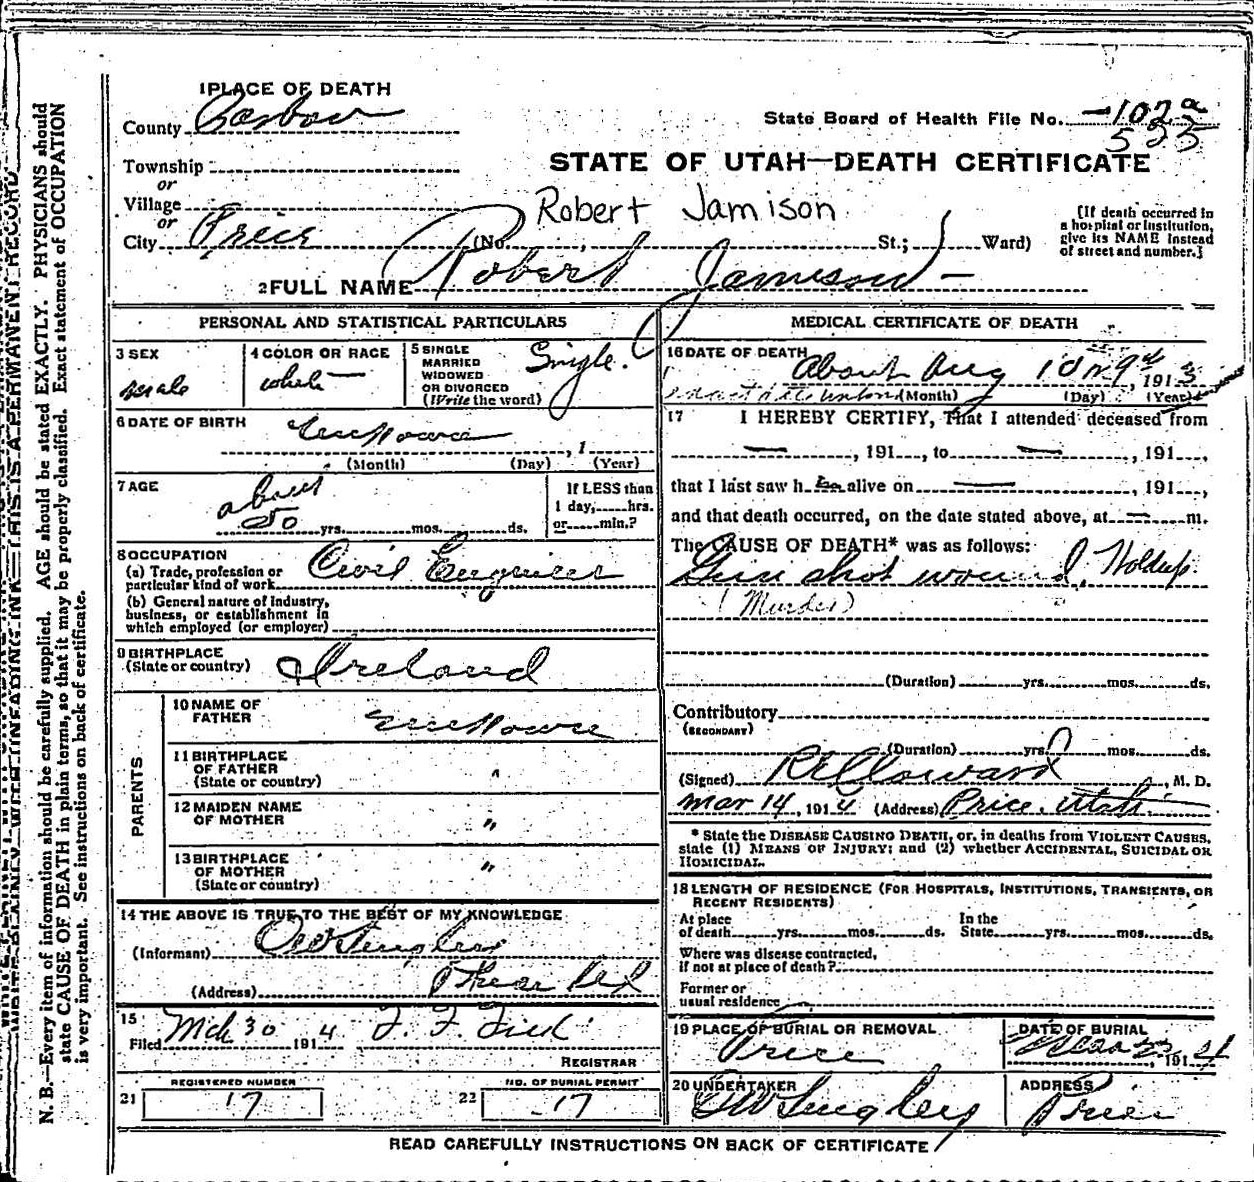 1 PLACE OF DEATH
County Carbon
State Board of Health File No. 102a
525
Township
or
Village
or
City Price
STATE OF UTAH—DEATH CERTIFICATE
Robert Jamison
(No. , St.; Ward)
[If death occurred in
a hospital or institution,
give its NAME instead
of street and number.]
2 FULL NAME Robert Jamison
PERSONAL AND STATISTICAL PARTICULARS
3 SEX
male
4 COLOR OR RACE
white
5 SINGLE
MARRIED
WIDOWED
OR DIVORCED
(Write the word)
Single.
6 DATE OF BIRTH
Unknown
, 1
(Month) (Day) (Year)
7 AGE
about
50 yrs. mos. ds.
If LESS than
1 day, hrs.
or min.?
8 OCCUPATION
(a) Trade, profession or
particular kind of work Civil Engineer
(b) General nature of industry,
business, or establishment in
which employed (or employer)
9 BIRTHPLACE
(State or country) Ireland
PARENTS
10 NAME OF
FATHER Unknown
11 BIRTHPLACE
OF FATHER "
(State or country)
12 MAIDEN NAME
OF MOTHER "
13 BIRTHPLACE
OF MOTHER "
(State or country)
14 THE ABOVE IS TRUE TO THE BEST OF MY KNOWLEDGE
(Informant)
(Address)
15
Filed Mch 30 1914
REGISTRAR
REGISTERED NUMBER
21 17
NO. OF BURIAL PERMIT
22 17
MEDICAL CERTIFICATE OF DEATH
16 DATE OF DEATH
About Aug , 1913
(Month) (Day) (Year)
17 I HEREBY CERTIFY, That I attended deceased from
— , 191 , to — , 191 ,
that I last saw h alive on — , 191 ,
and that death occurred, on the date stated above, at — m.
The CAUSE OF DEATH* was as follows:
Gun shot wound, Holdup
(Murder)
(Duration) yrs. mos. ds.
Contributory
(SECONDARY)
(Duration) yrs. mos. ds.
(Signed) , M. D.
Mar 14, 1914 (Address) Price, Utah
* State the DISEASE CAUSING DEATH, or, in deaths from VIOLENT CAUSES,
state (1) MEANS OF INJURY; and (2) whether ACCIDENTAL, SUICIDAL OR
HOMICIDAL.
18 LENGTH OF RESIDENCE (FOR HOSPITALS, INSTITUTIONS, TRANSIENTS, OR
RECENT RESIDENTS)
At place
of death yrs. mos. ds.
In the
State yrs. mos. ds.
Where was disease contracted,
if not at place of death?
Former or
usual residence
19 PLACE OF BURIAL OR REMOVAL
Price
DATE OF BURIAL
, 1914
20 UNDERTAKER
ADDRESS
Price
READ CAREFULLY INSTRUCTIONS ON BACK OF CERTIFICATE
WRITE PLAINLY, WITH UNFADING INK—THIS IS A PERMANENT RECORD
N. B.—Every item of information should be carefully supplied. AGE should be stated EXACTLY. PHYSICIANS should
state CAUSE OF DEATH in plain terms, so that it may be properly classified. Exact statement of OCCUPATION
is very important. See instructions on back of certificate.